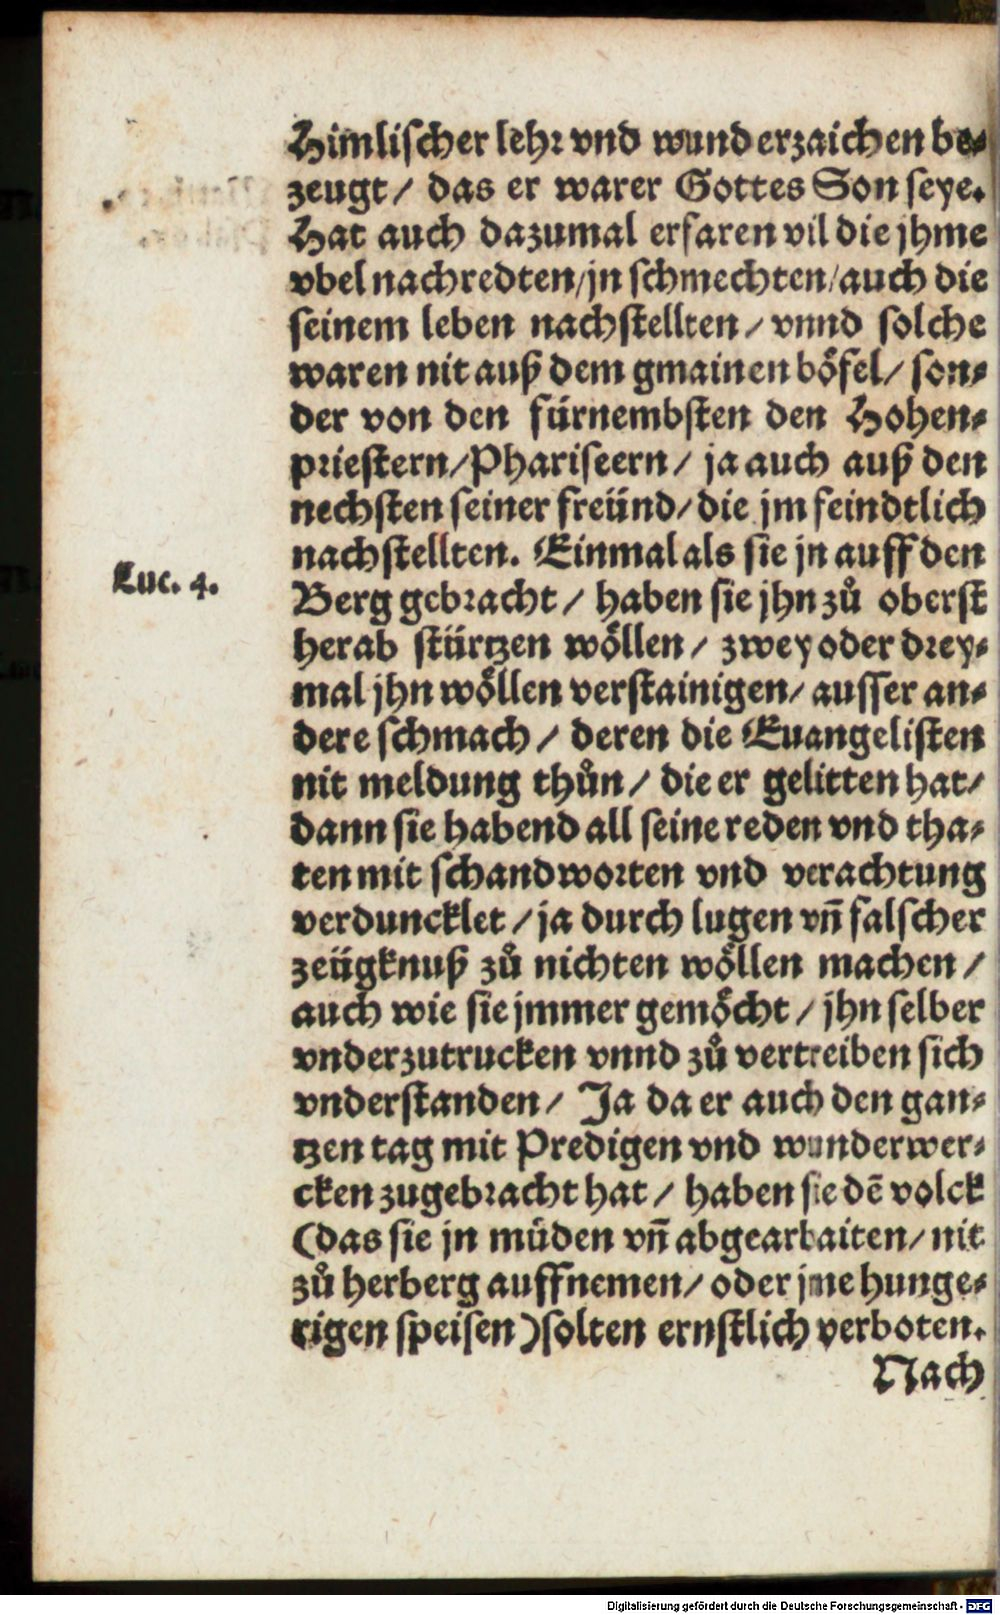 Himlischer lehr vnd wunderzaichen be⸗
zeugt/ das er warer Gottes Son seye.
Hat auch dazumal erfaren vil die jhme
vbel nachredten/jn schmechten/auch die
seinem leben nachstellten/ vnnd solche
waren nit auß dem gmainen böfel/ son⸗
der von den fürnembsten den Hohen⸗
priestern/Phariseern/ ja auch auß den
nechsten seiner freünd/die jm feindtlich
nachstellten. Einmal als sie jn auff den
Luc. 4.
Berg gebracht/ haben sie jhn zů oberst
herab stürtzen wöllen/ zwey oder drey⸗
mal jhn wöllen verstainigen/ ausser an⸗
dere schmach/ deren die Euangelisten
nit meldung thůn/ die er gelitten hat/
dann sie habend all seine reden vnd tha⸗
ten mit schandworten vnd verachtung
verduncklet/ja durch lugen vñ falscher
zeügknuß zů nichten wöllen machen/
auch wie sie jmmer gemöcht/ jhn selber
vnderzutrucken vnnd zů vertreiben sich
vnderstanden/ Ja da er auch den gan⸗
tzen tag mit Predigen vnd wunderwer⸗
cken zugebracht hat/ haben sie dẽ volck
(das sie jn müden vñ abgearbaiten/ nit
zů herberg auffnemen/ oder jne hunge⸗
rigen speisen)solten ernstlich verboten.
Nach
Digitalisierung gefördert durch die Deutsche Forschungsgemeinschaft - DFG